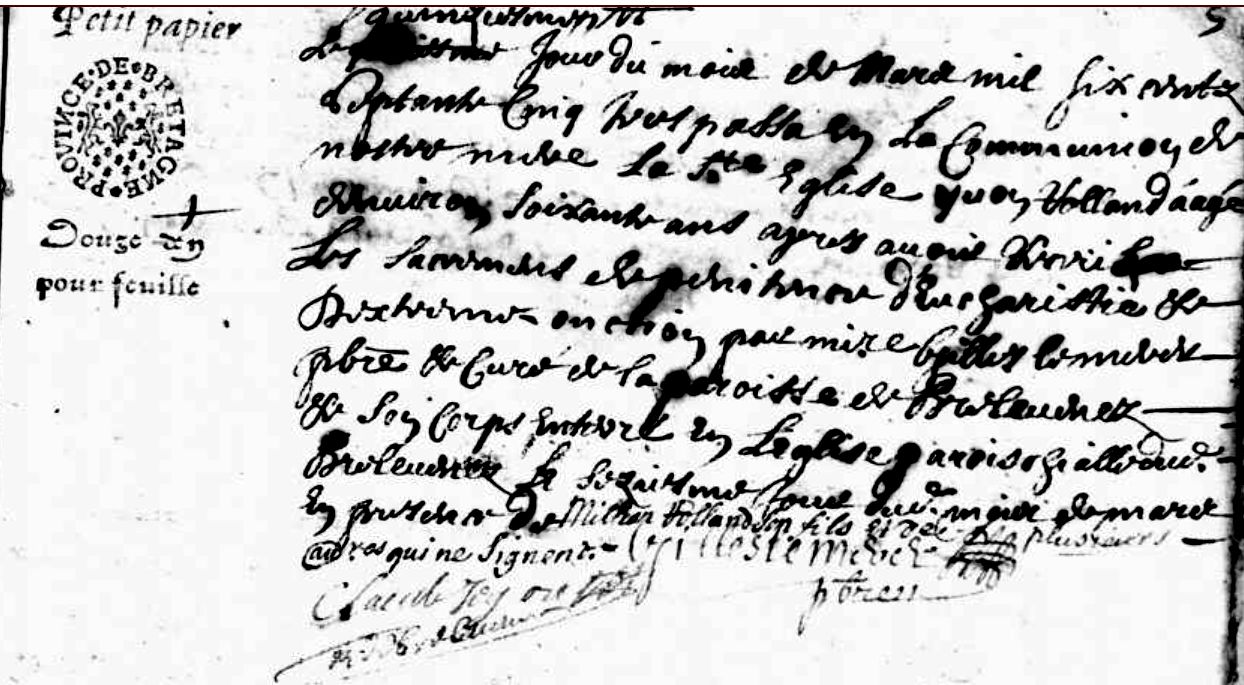 Petit papier
PROVINCE DE BRETAGNE
Douze dn
pour feuille
5
quinziesme
Le jour du mois de Mars mil six cents
septante cinq trespassa en La Communion de
nostre mere La Ste Eglise yvon Volland áagé
denviron soixante ans apres avoir
Les sacrements de penitence deucharistie et
Dextreme onction par mire Gilles Le medec
pbre et Curé de la paroisse de Brelevenez
et son Corps Enterré en L'eglise paroischialle dud.
Brelevenez le seziesme jour dud. mois de mars
En presence de Volland son fils et de plusieurs
autres qui ne signent.
Gilles le medec
Claude
pbre